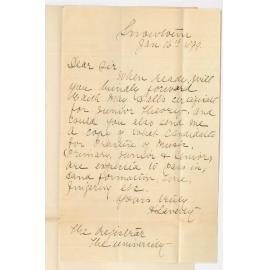 Snowtown
Jan 16th 1899.
Dear Sir.
When ready, will
you kindly forward
Miss Hall's certificate
for Junior Theory, and
could you also send me
a copy of what Candidates
for Practice of Music,
Primary, Junior & Senior,
are expected to pass in,
hand formation, tone,
fingering etc.
Yours truly
The Registrar
The University